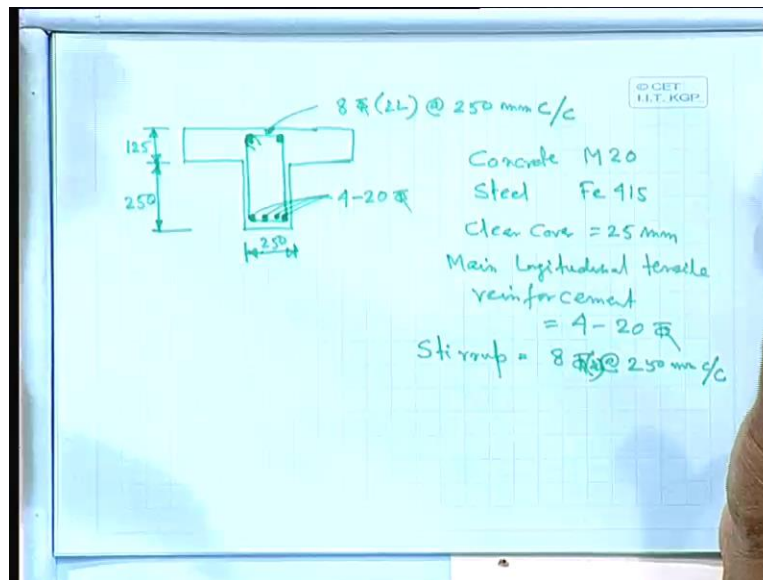 8 Φ (2L) @ 250 mm c/c
© CET
I.I.T. KGP
125
250
4-20 Φ
250
Concrete M20
Steel Fe 415
Clear Cover = 25 mm
Main Longitudinal tensile
reinforcement
= 4-20 Φ
Stirrup = 8 Φ @ 250 mm c/c